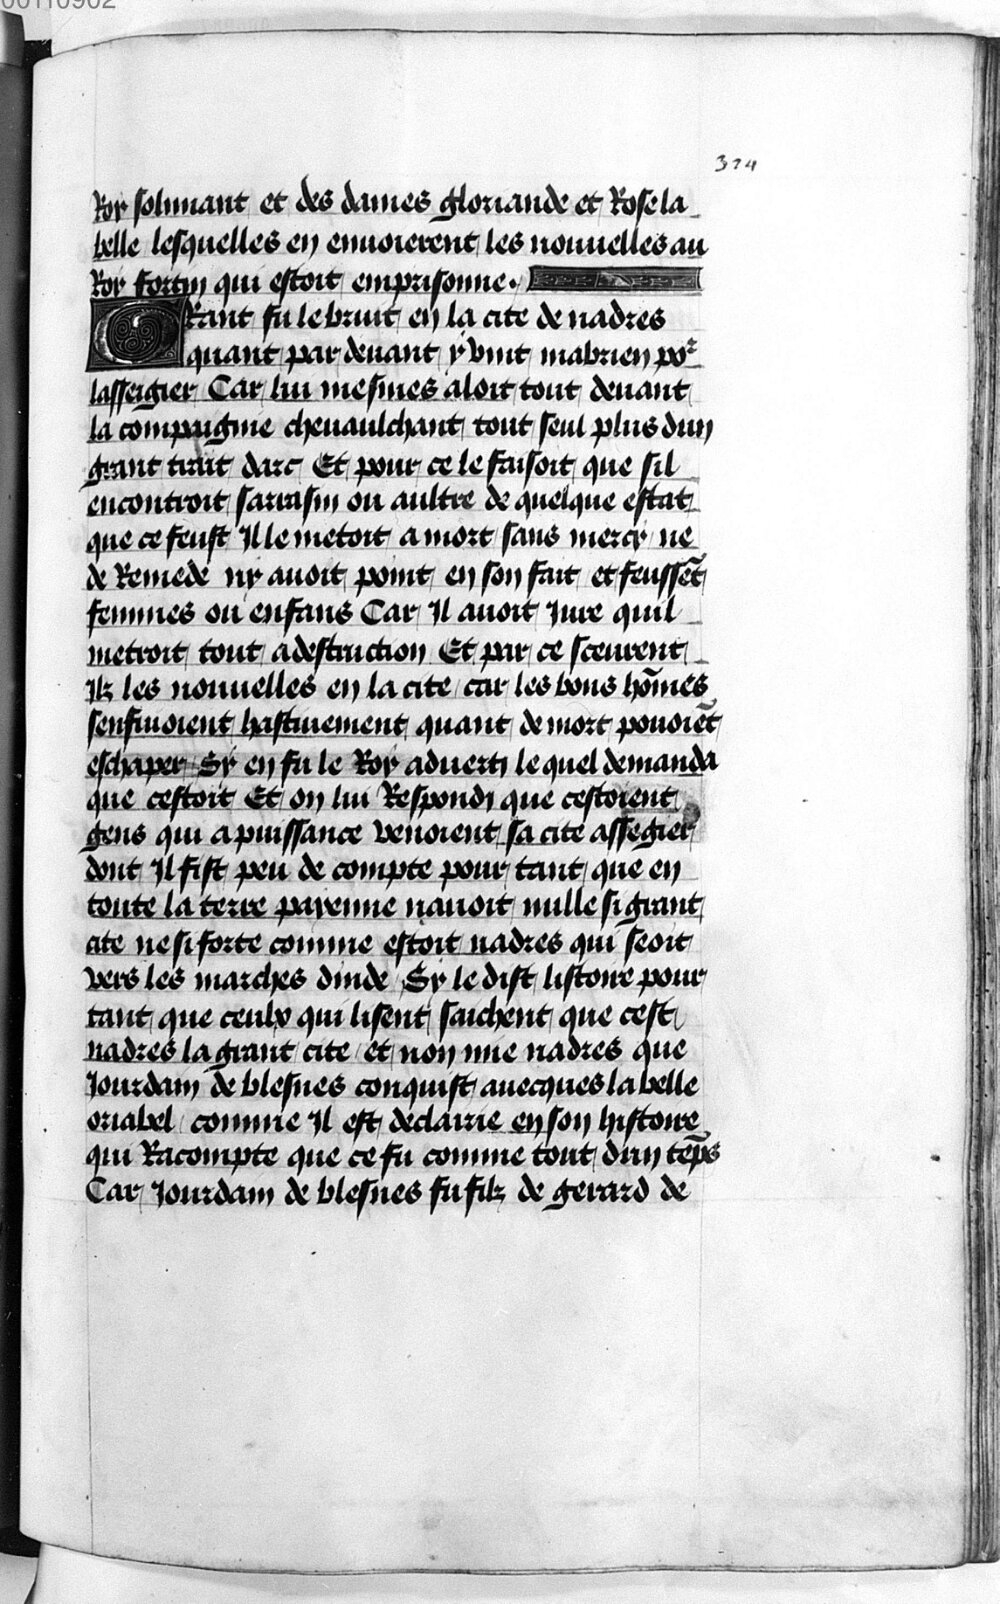 00110902
374
Roy solimant et des dames gloriande et Rose la
belle lesquelles en enuoierent les nouuelles au
Roy fortin qui estoit emprisonne.
Grant fu le bruit en la cite de nadres
quant par deuant y vint mabrien por
lasseigier Car lui mesmes aloit tout deuant
la compaignie cheuaulchant tout seul plus dun
grant trait darc Et pour ce le faisoit que sil
encontroit sarrasin ou aultre de quelque estat
que ce feust Il le metoit a mort sans mercy ne
de Remede ny auoit point en son fait et feussẽt
femmes ou enfans Car Il auoit Iure quil
metroit tout a destruction Et par ce sceurent
Ilz les nouuelles en la cite car les bons hõmes
senfuioient hastiuement quant de mort pouoiẽt
eschaper Sy en fu le Roy aduerti le quel demanda
que cestoit Et on lui Respondi que cestoient
gens qui a puissance venoient sa cite assegier
dont Il fist peu de compte pour tant que en
toute la terre payenne nauoit nulle si grant
cite ne si forte comme estoit nadres qui seoit
vers les marches dinde Sy le dist listoire pour
tant que ceulx qui lisent saichent que cest
nadres la grant cite et non mie nadres que
Iourdain de blesues conquist auecques la belle
oriabel comme Il est declairie en son histoire
qui Racompte que ce fu comme tout dun tẽps
Car Iourdain de blesues fu filz de gerard de